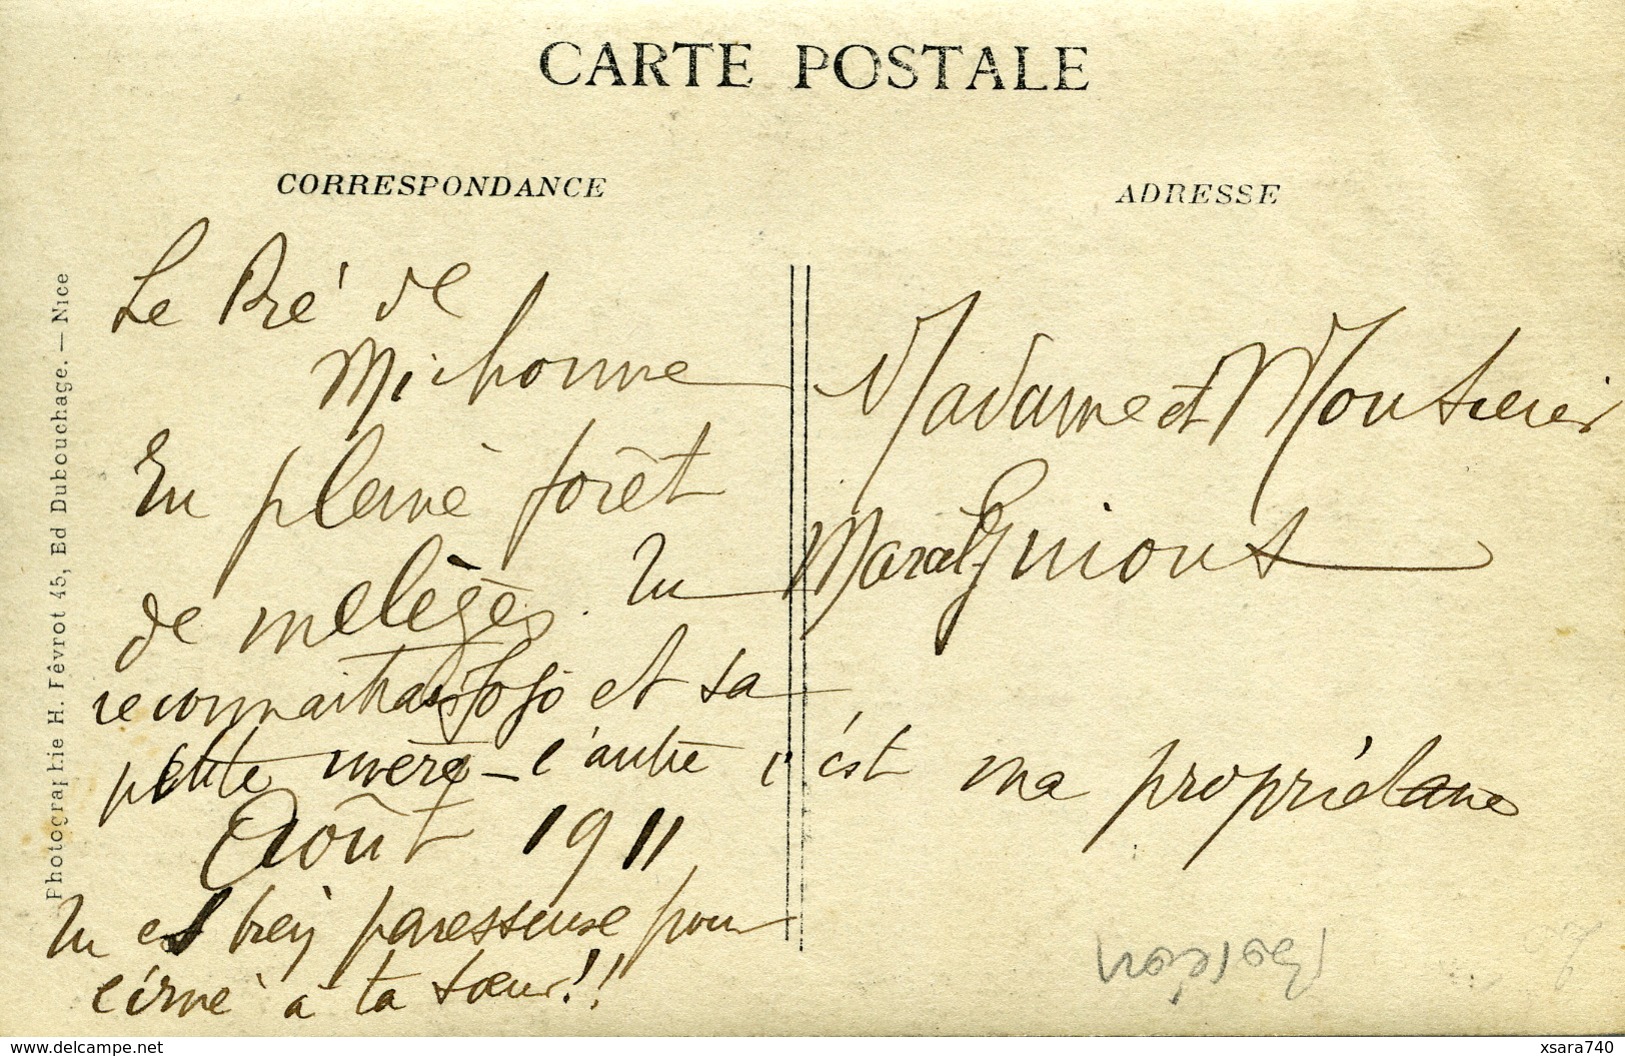 CARTE POSTALE
CORRESPONDANCE
ADRESSE
Photographie H. Févrot 45, Ed Dubouchage. — Nice
Le Pré de
Michonne
En pleine forêt
de mélèzes. Tu
reconnaitras Jojo et sa
petite mère – l'autre c'est ma propriétaire
Août 1911
Tu es bien paresseuse pour
écrire à ta sœur!!
Madame et Monsieur
Marcel Guiont
xsara740